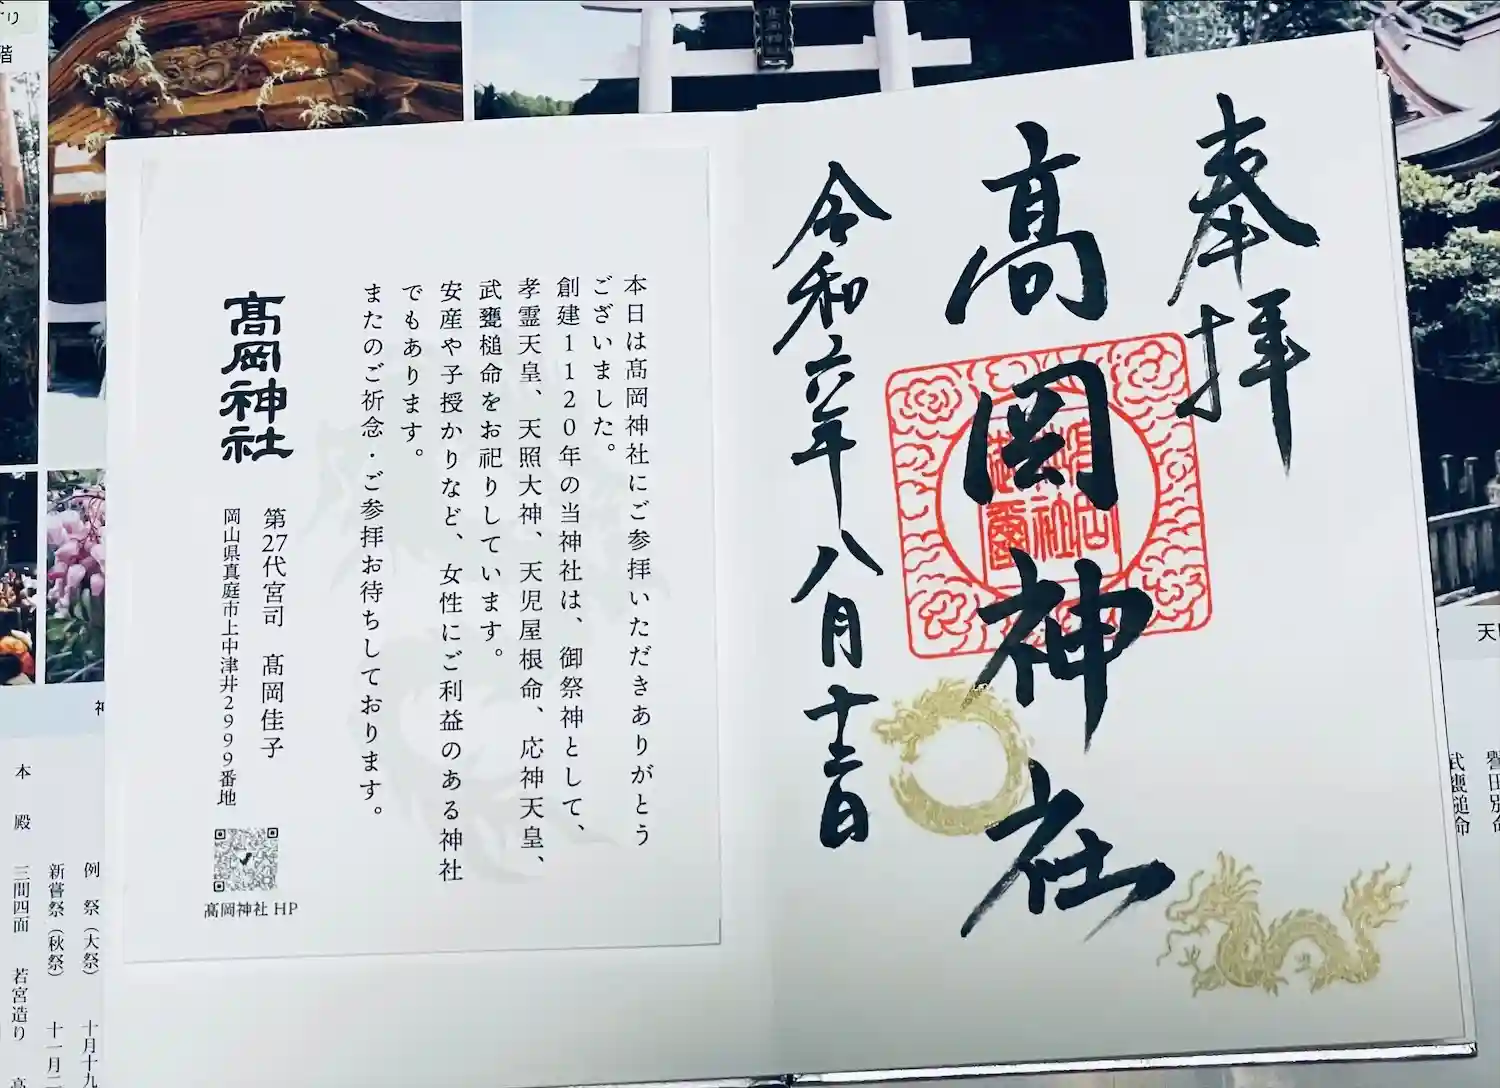 奉拝
髙岡神社
令和六年八月十三日
本日は髙岡神社にご参拝いただきありがとう
ございました。
創建1120年の当神社は、御祭神として、
孝霊天皇、天照大神、天児屋根命、応神天皇、
武甕槌命をお祀りしています。
安産や子授かりなど、女性にご利益のある神社
でもあります。
またのご祈念・ご参拝お待ちしております。
髙岡神社
第27代宮司　髙岡佳子
岡山県真庭市上中津井2999番地
髙岡神社 HP
髙岡神社
階
神
誉田別命
武甕槌命
例　祭（大祭）　十月十九
新嘗祭（秋祭）　十一月二
本　殿　三間四面　若宮造り